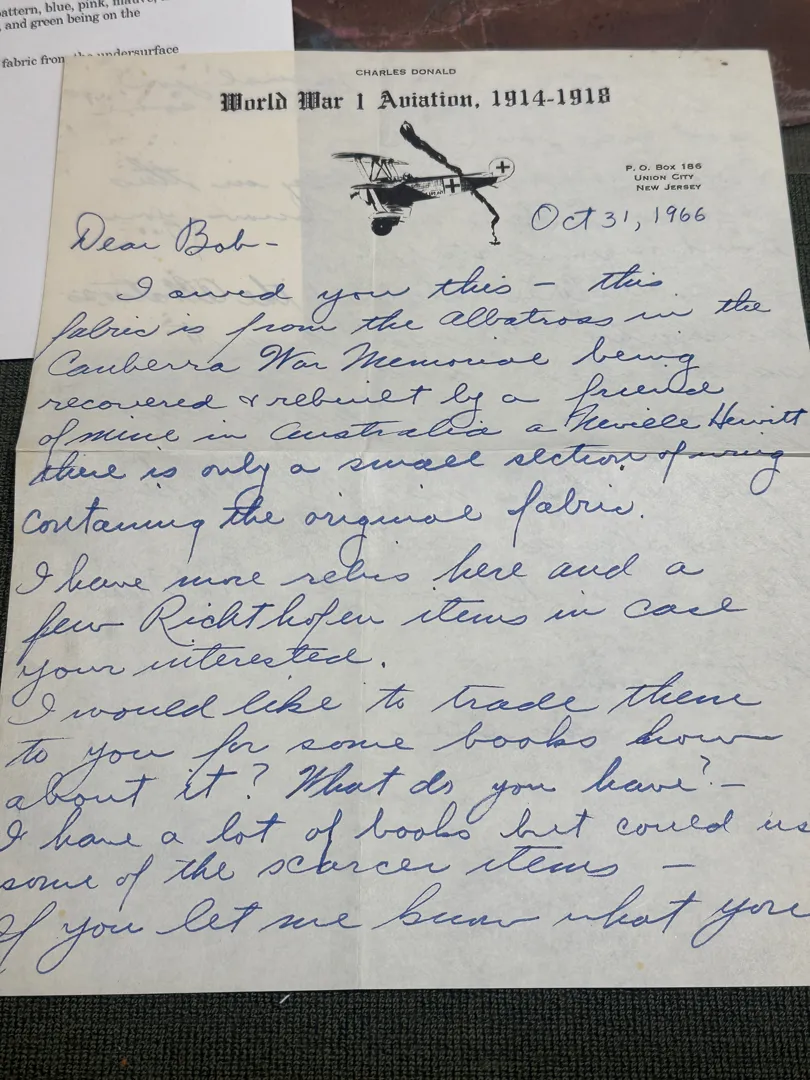 pattern, blue, pink, mauve,
, and green being on the
fabric from the undersurface
CHARLES DONALD
World War 1 Aviation, 1914-1918
P. O. Box 186
UNION CITY
NEW JERSEY
Oct 31, 1966
Dear Bob-
I owed you this - this
fabric is from the Albatross in the
Canberra War Memorial being
recovered & rebuilt by a friend
of mine in Australia a Neville Hewitt
there is only a small section of wing
containing the original fabric.
I have more relics here and a
few Richthofen items in case
your interested.
I would like to trade them
to you for some books how
about it? What do you have? -
I have a lot of books but could us
some of the scarcer items -
If you let me know what you